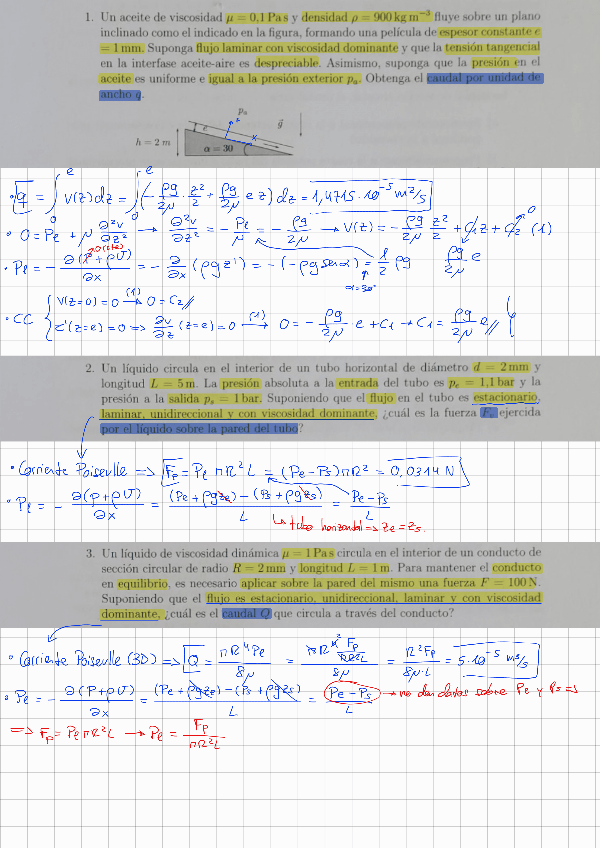 1. Un aceite de viscosidad μ = 0,1 Pa s y densidad ρ = 900 kg m⁻³ fluye sobre un plano
inclinado como el indicado en la figura, formando una película de espesor constante e
= 1 mm. Suponga flujo laminar con viscosidad dominante y que la tensión tangencial
en la interfase aceite-aire es despreciable. Asimismo, suponga que la presión en el
aceite es uniforme e igual a la presión exterior pₐ. Obtenga el caudal por unidad de
ancho q.
pₐ
z
e
x
g⃗
h = 2 m
α = 30
• q = ∫₀ᵉ v(z)dz = ∫₀ᵉ (-ρg/2μ z²/2 + ρg/2μ e z) dz = 1,4715·10⁻⁵ m²/s
• 0 = Pe + μ ∂²v/∂z² → ∂²v/∂z² = -Pe/μ = -ρg/2μ → v(z) = -ρg/2μ z²/2 + C₁z + C₂ (1)
0
ρg/2μ e
• Pe = -∂(P+ρU)/∂x = -∂/∂x (ρgz') = -(-ρg sen α) = 1/2 ρg
α=30°
• CC { v(z=0) = 0 →(1) 0 = C₂
τ'(z=e) = 0 => ∂v/∂z (z=e) = 0 →(1) 0 = -ρg/2μ · e + C₁ → C₁ = ρg/2μ e
2. Un líquido circula en el interior de un tubo horizontal de diámetro d = 2 mm y
longitud L = 5 m. La presión absoluta a la entrada del tubo es pₑ = 1,1 bar y la
presión a la salida pₛ = 1 bar. Suponiendo que el flujo en el tubo es estacionario,
laminar, unidireccional y con viscosidad dominante, ¿cuál es la fuerza Fᵥ ejercida
por el líquido sobre la pared del tubo?
• Corriente Poiseuille => Fp = Pe πR²L = (Pe - Ps)πR² = 0,0314 N
• Pe = -∂(p+ρU)/∂x = (Pe + ρgze) - (Ps + ρgzs)/L = Pe - Ps/L
↳ tubo horizontal => ze = zs
3. Un líquido de viscosidad dinámica μ = 1 Pa s circula en el interior de un conducto de
sección circular de radio R = 2 mm y longitud L = 1 m. Para mantener el conducto
en equilibrio, es necesario aplicar sobre la pared del mismo una fuerza F = 100 N.
Suponiendo que el flujo es estacionario, unidireccional, laminar y con viscosidad
dominante, ¿cuál es el caudal Q que circula a través del conducto?
• Corriente Poiseuille (3D) => Q = πR⁴Pe/8μ = πR⁴ Fp/πR²L /8μ = R²Fp/8μ·L = 5·10⁻⁵ m³/s
• Pe = -∂(P+ρU)/∂x = (Pe + ρgze) - (Ps + ρgzs)/L = Pe - Ps/L → no dan datos sobre Pe y Ps =>
=> Fp = Pe πR²L → Pe = Fp/πR²L